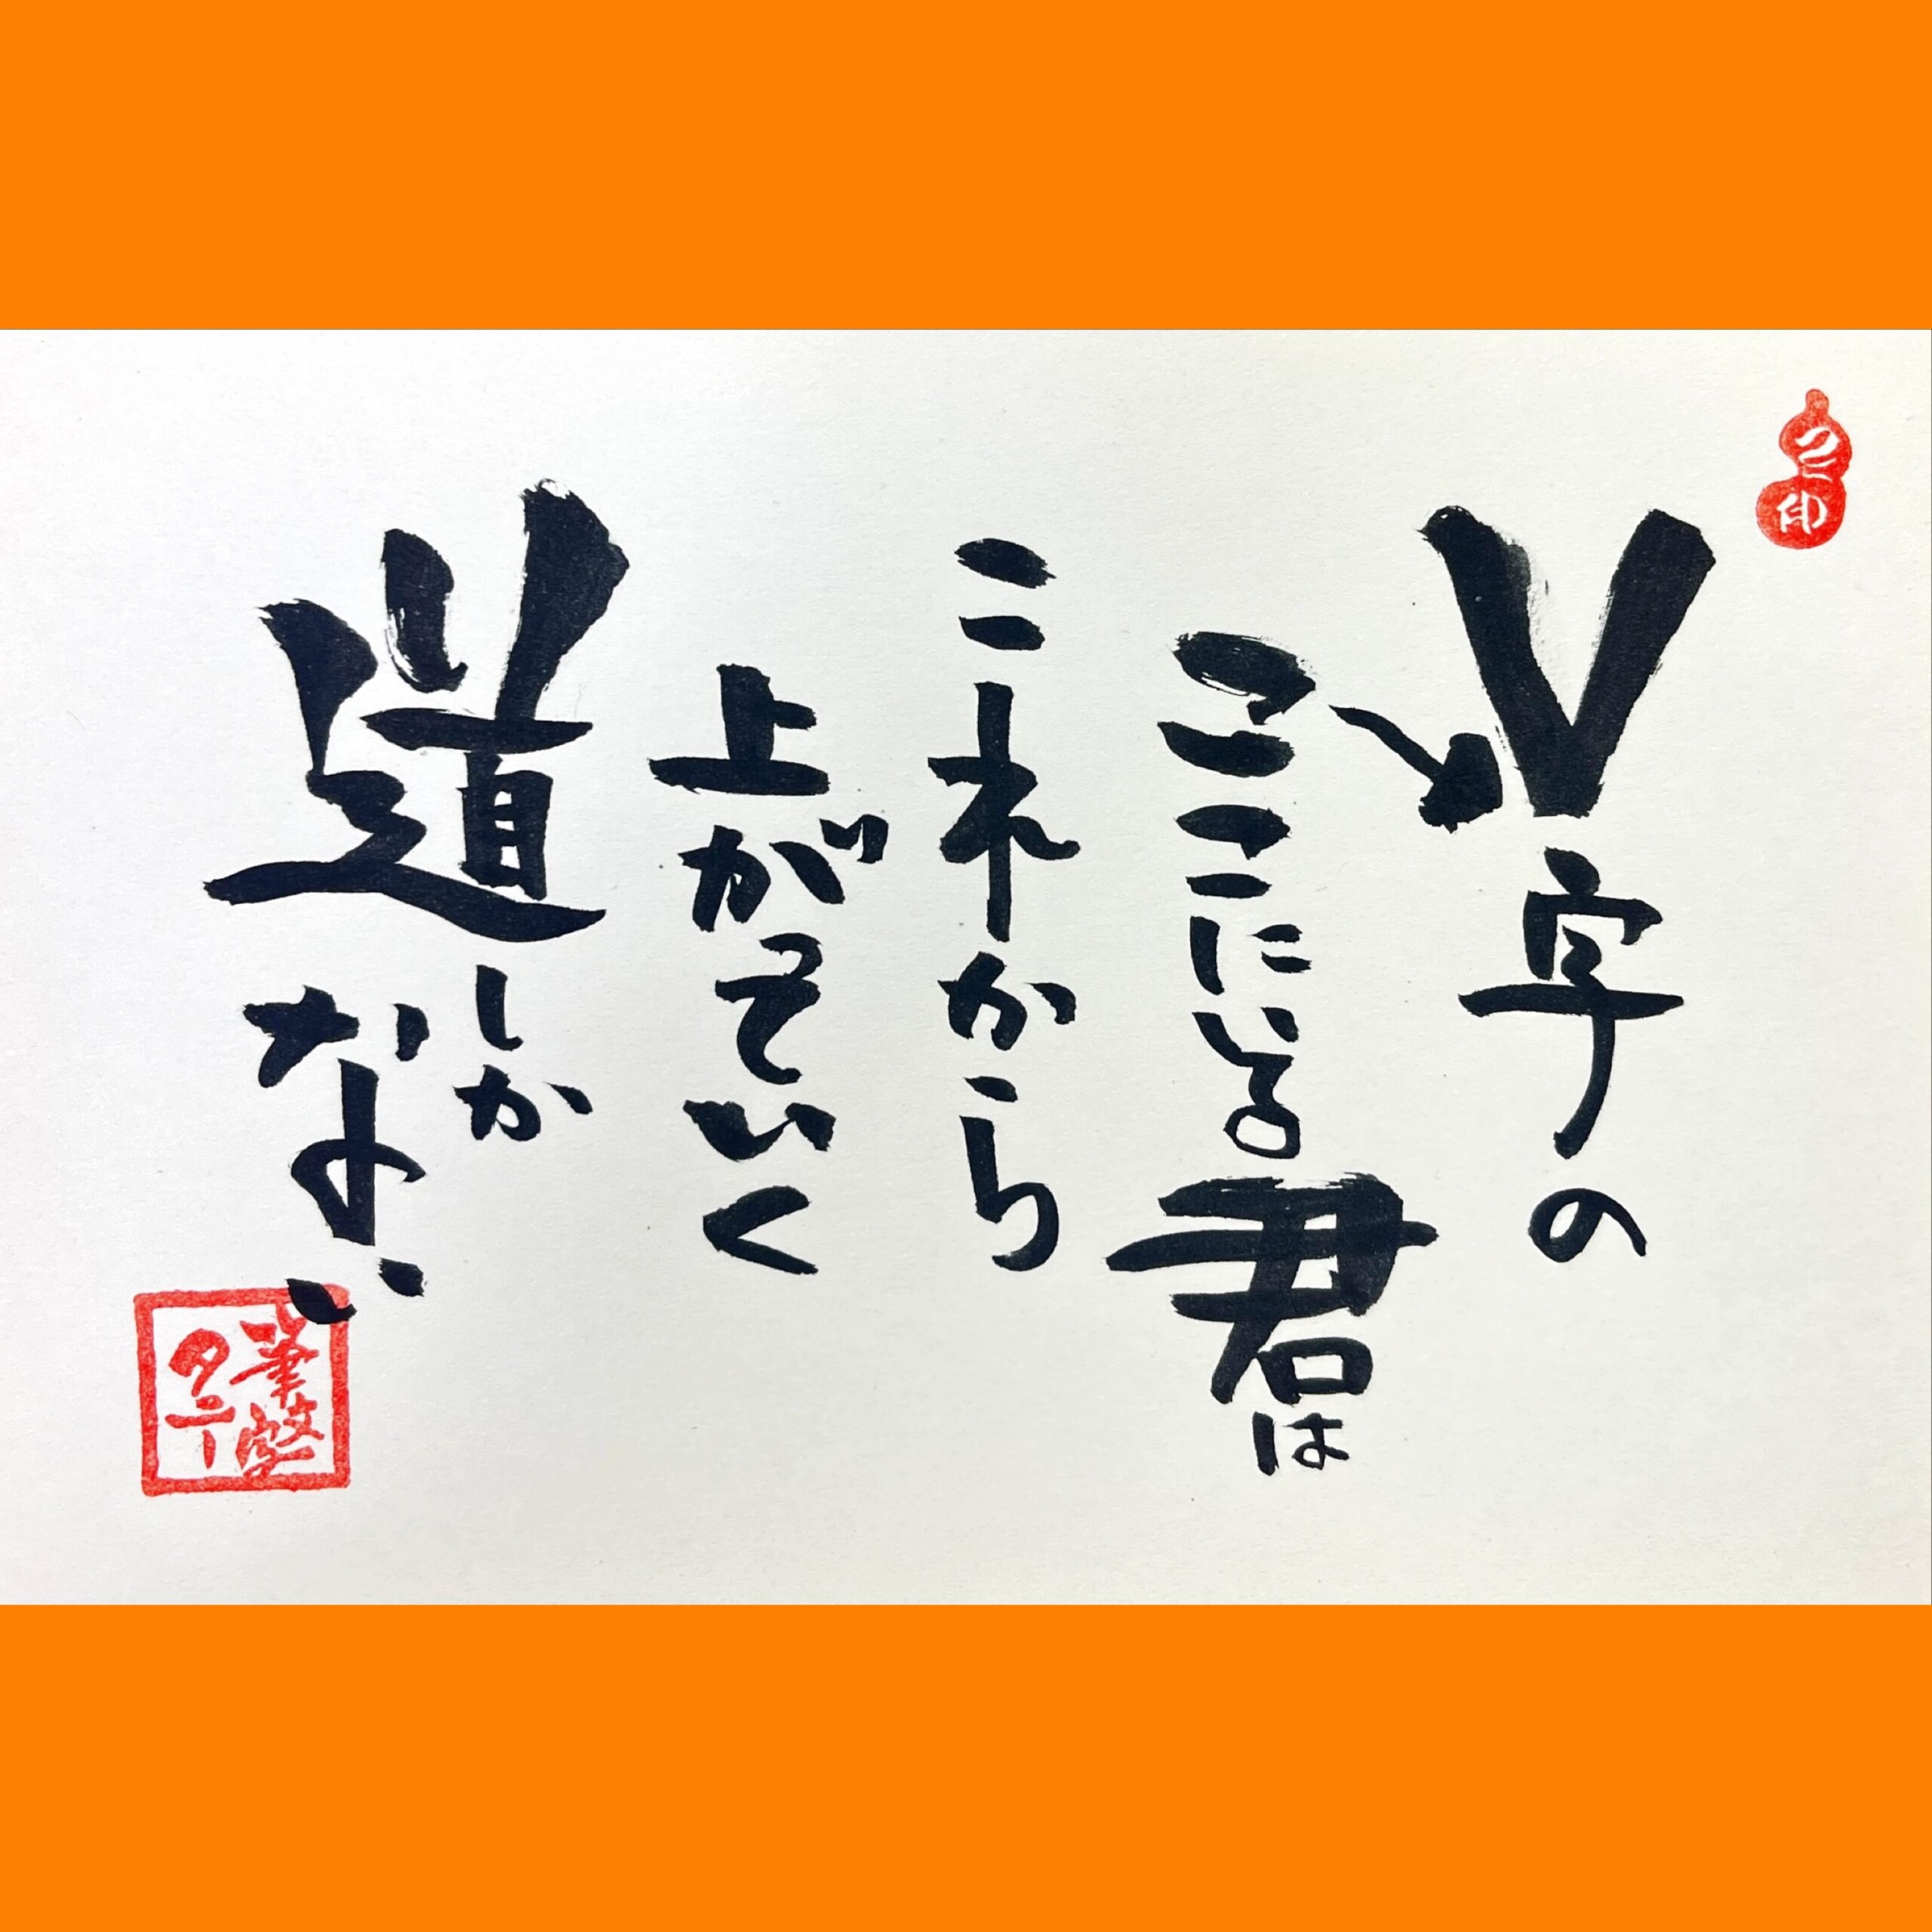 V字の
ここにいる君は
これから
上がっていく
道しか
ない
筆整
タニー